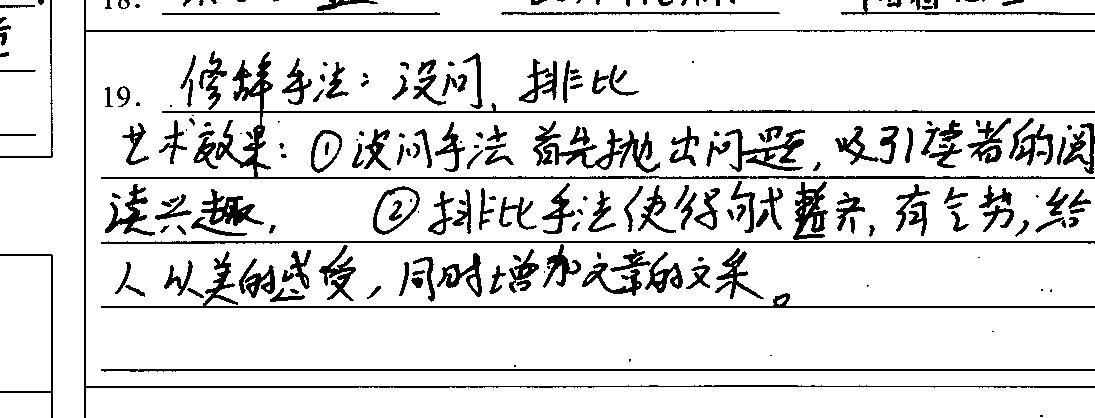 18.
19. 修辞手法：设问、排比
艺术效果：①设问手法首先抛出问题，吸引读者的阅
读兴趣， ②排比手法使得句式整齐，有气势，给
人以美的感受，同时增加文章的文采。